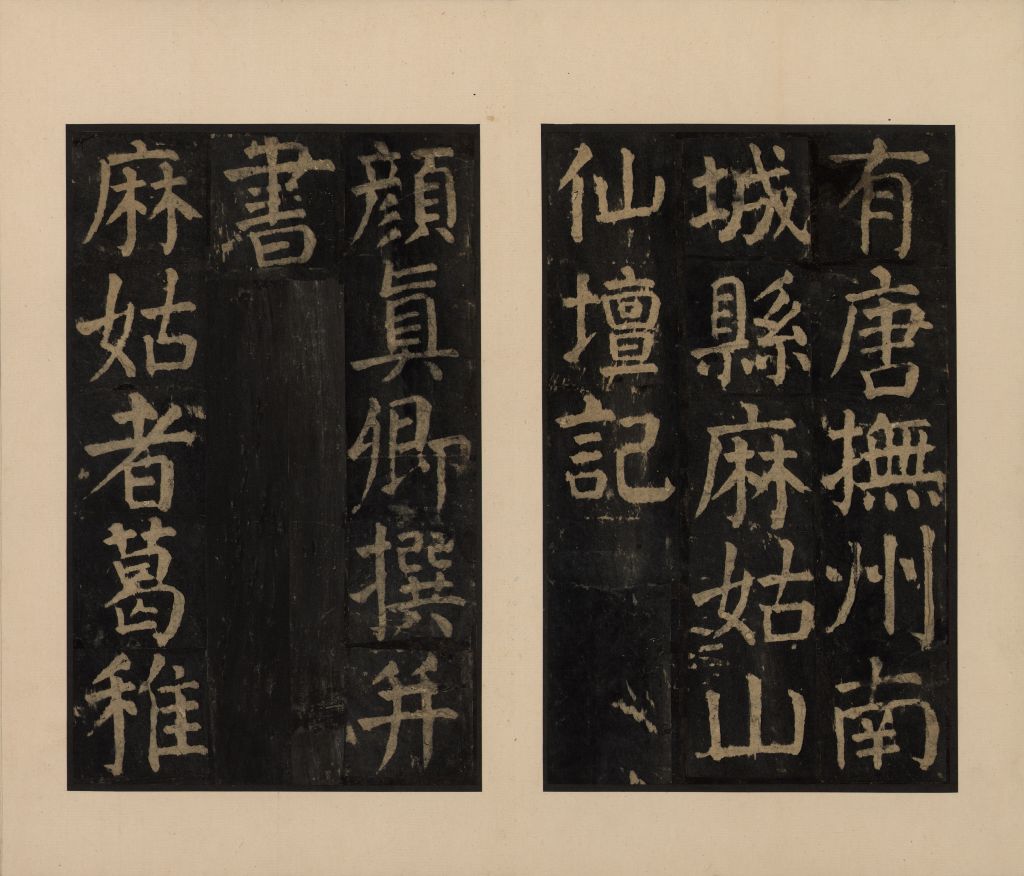 有唐撫州南
城縣麻姑山
仙壇記
顏真卿撰并
書
麻姑者葛稚